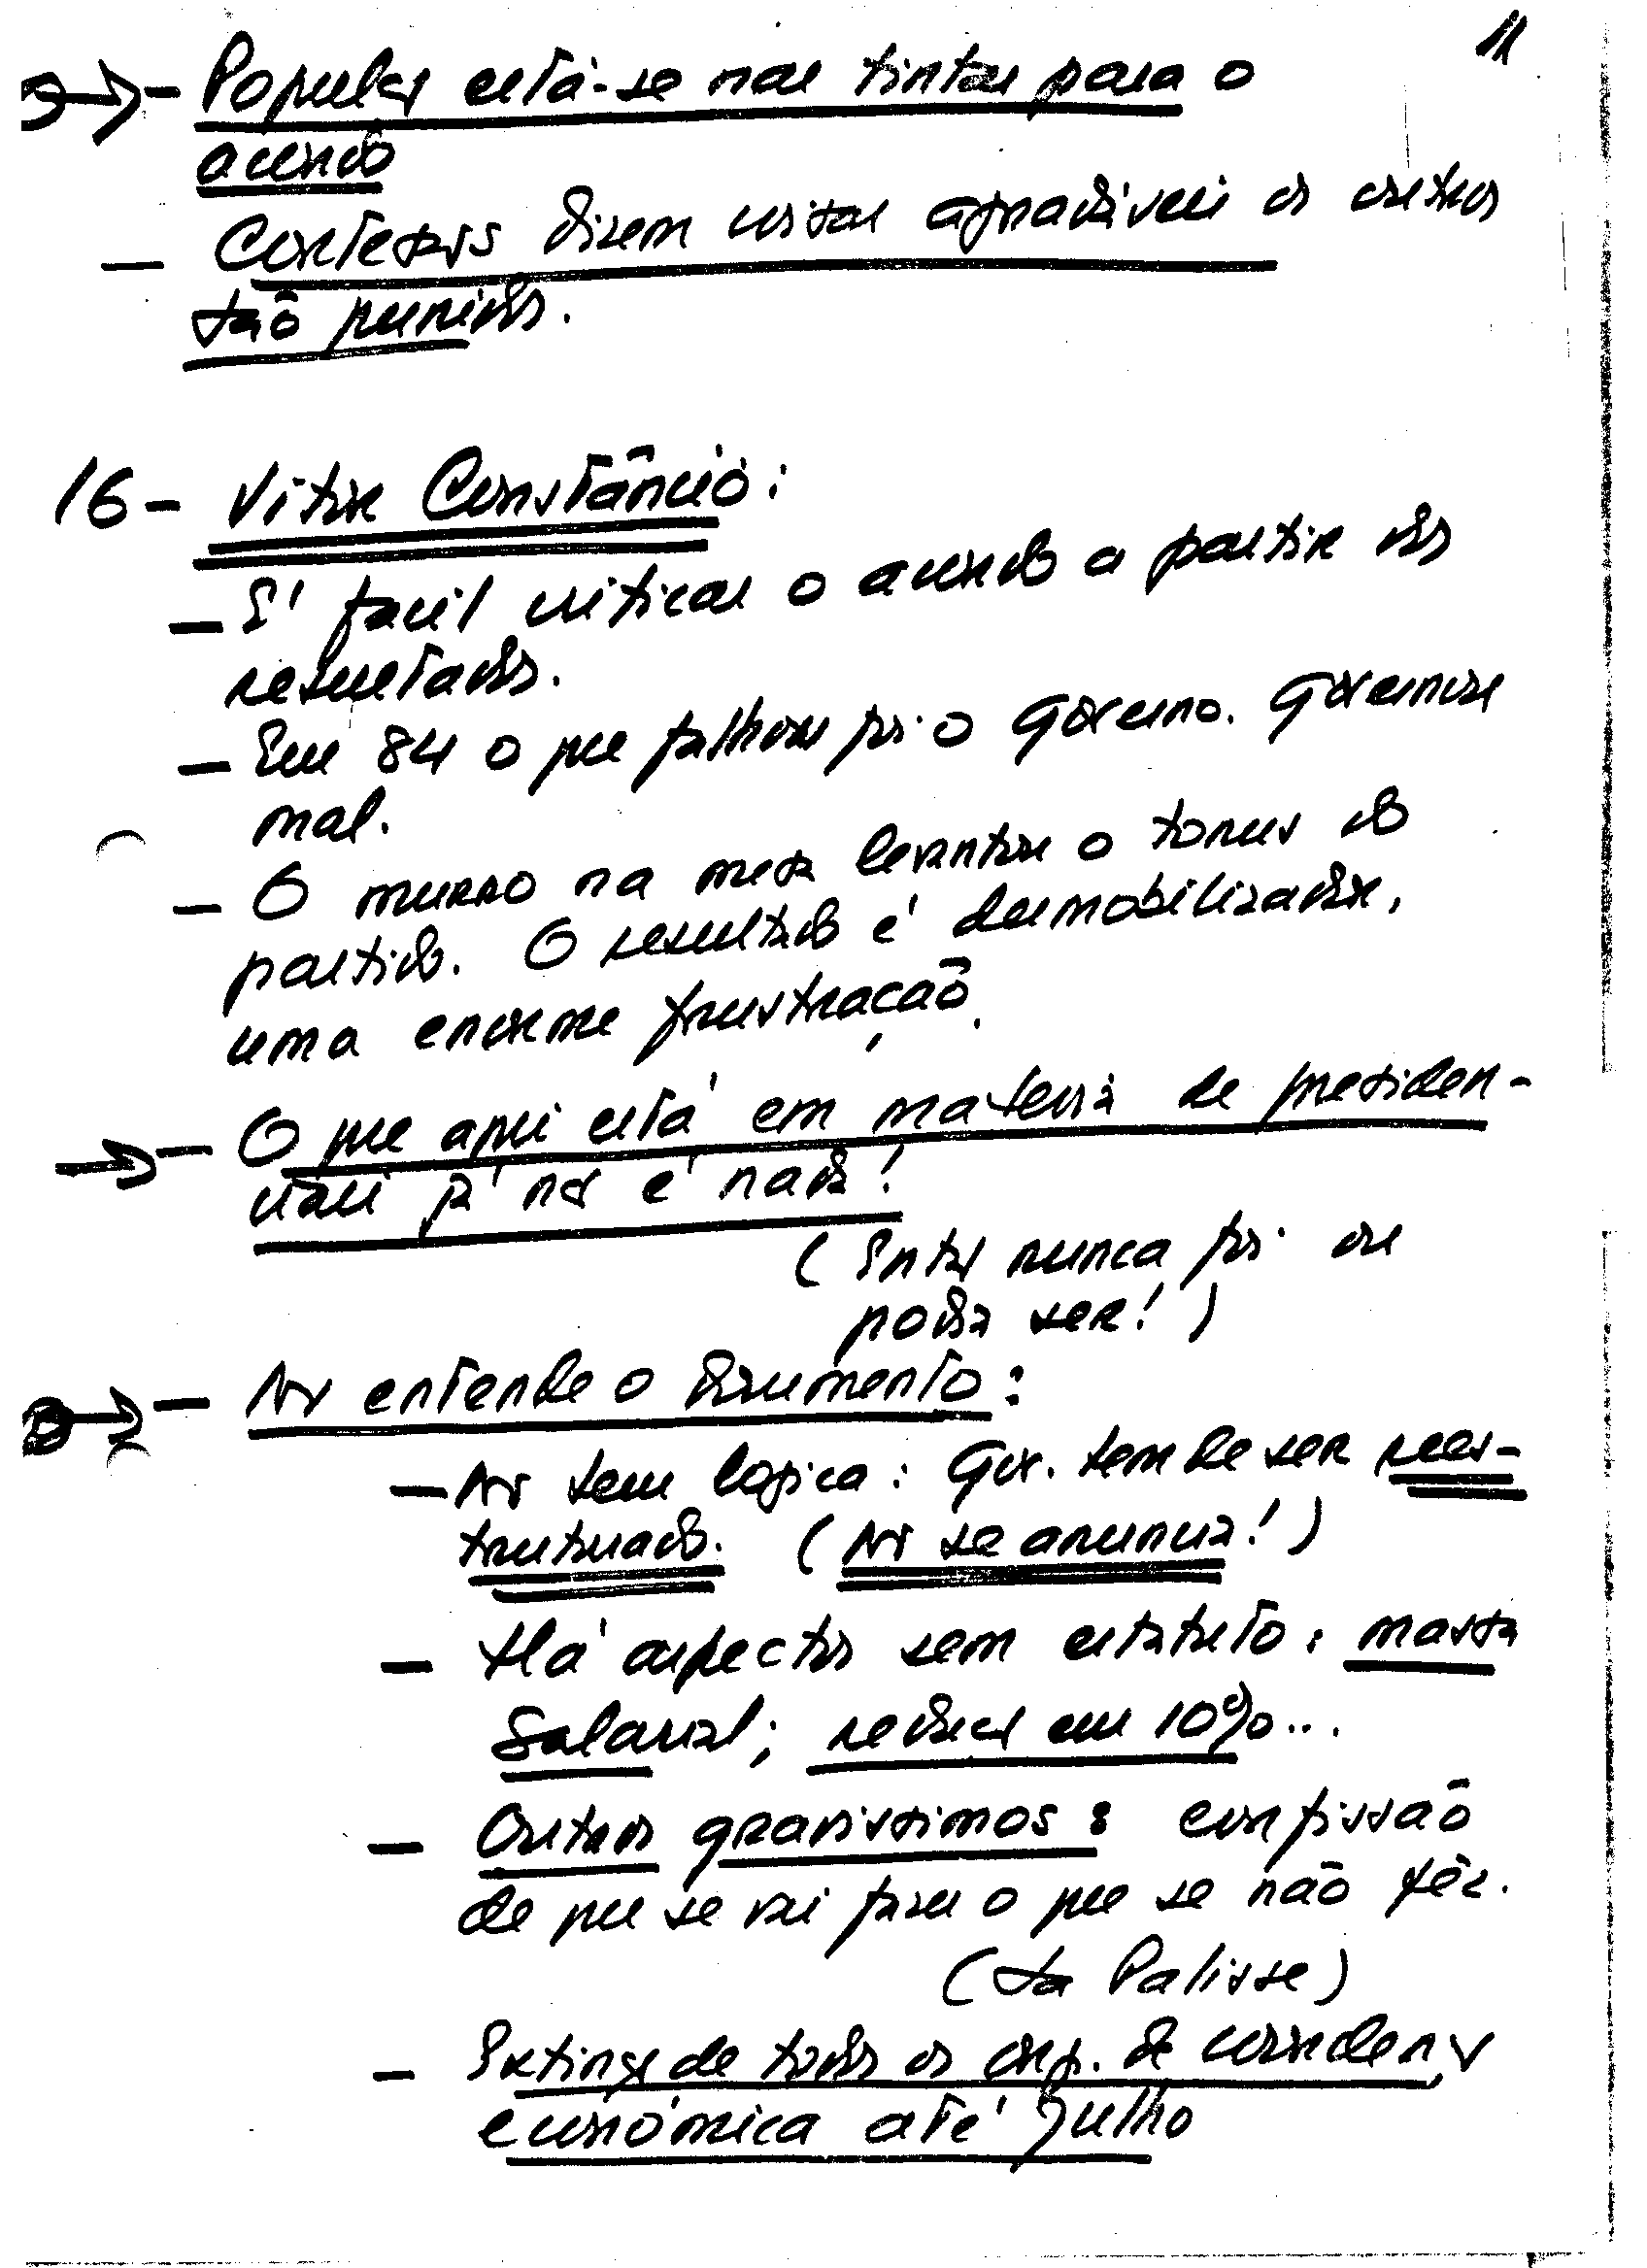 11
→ - População está-se nas tintas para o
acordo
- Cortesãos dizem coisas agradáveis os outros
são punidos.
16 - Vitor Constâncio:
- É facil criticar o acordo a partir dos
resultados.
- Em 84 o que falhou foi o Governo. Governou
mal.
- O murro na mesa levantou o tonus do
partido. O resultado é desmobilizador,
uma enorme frustração.
→ - O que aqui está em materia de presiden-
ciais já não é nada!
(Então nunca foi ou
podia ser!)
→ - Não entende o documento:
- Não tem logica: Gov. tem de ser rees-
truturado. (Não se anuncia!)
- Há aspectos sem estatuto: massa
salarial; redução em 10%...
- Outros gravissimos: confissão
de que se vai fazer o que se não fêz.
(La Palisse)
- Extinção de todos os org. de coordenação
económica até Julho